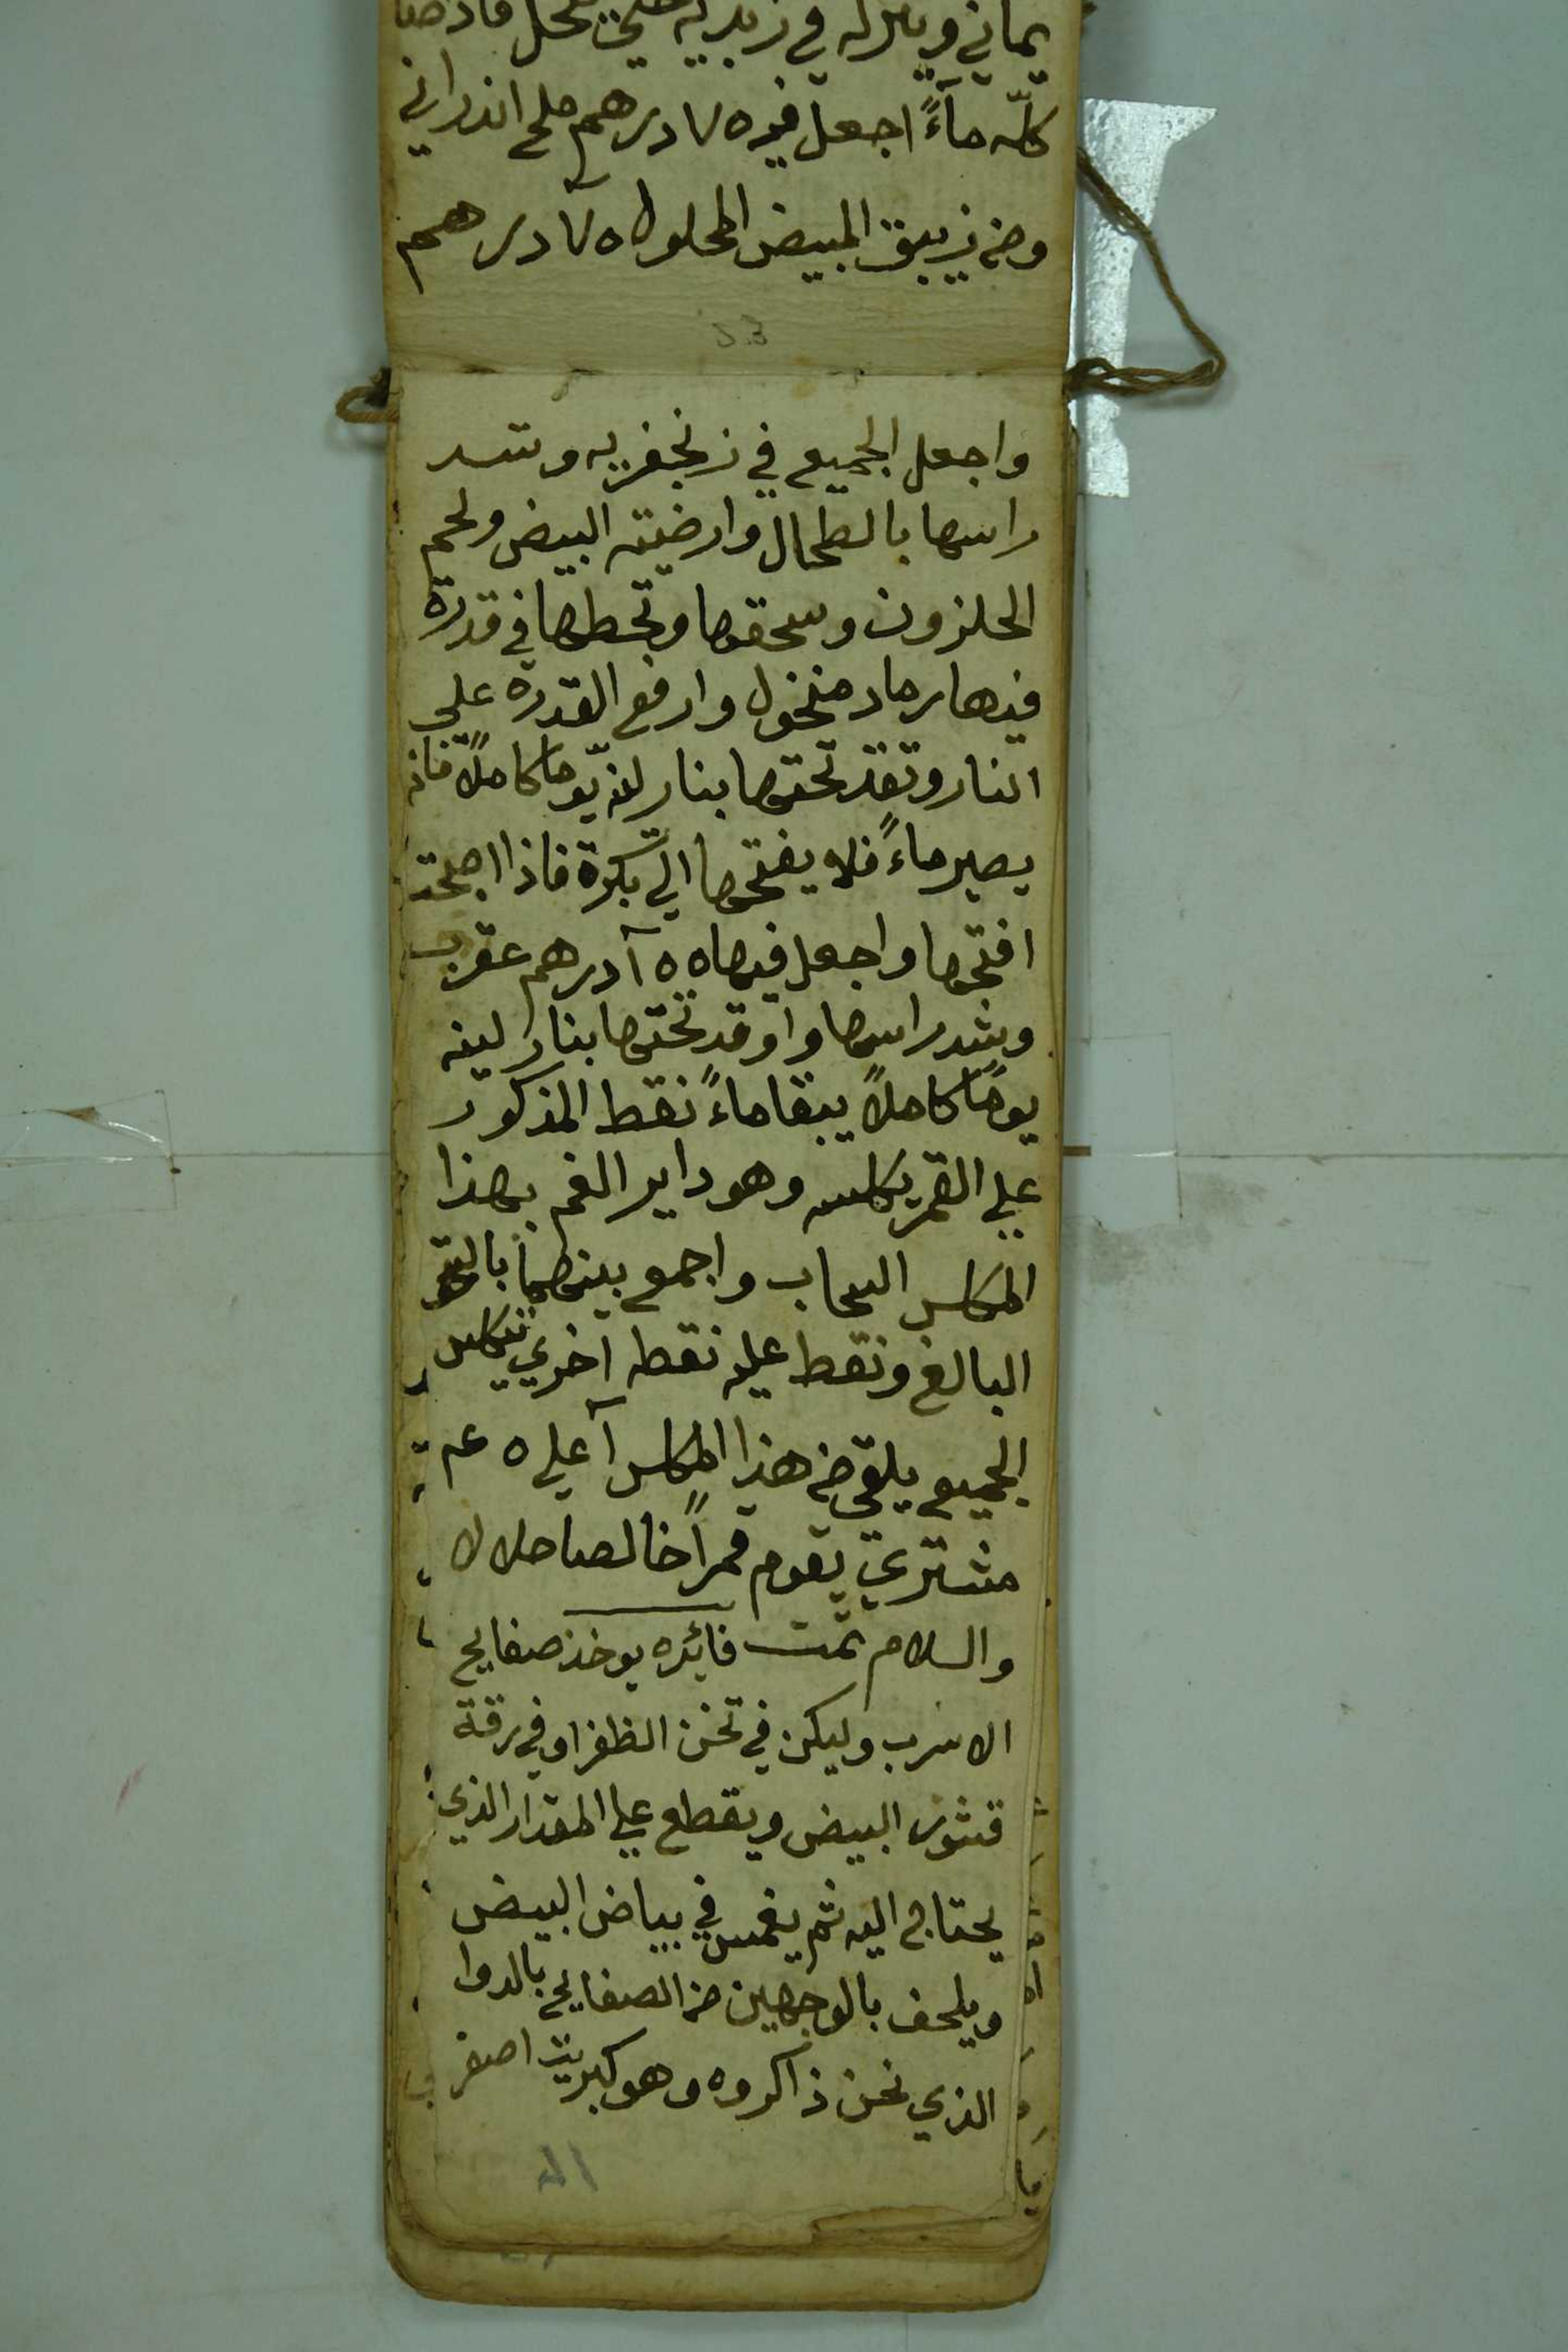 كلّه مآءً اجعل فيه ٧٥ درهم ملح اندراني
ومن زيبق المبيض المحلول ٧٥ درهم
واجعل الجميع في زنجفريه وتسد
راسها بالطحال وارضيته البيض ولحم
الحلزون وسحقها وتحطها في قدرة
فيها رماد منخول وارفع القدرة علي
النار وتقد تحتها بنار لينه يومًا كاملاً فانه
يصير ماءً فلا يفتحها الي بكرة فاذا اصبحت
افتحها واجعل فيها درهم عقرب
وشد راسها واوقد تحتها بنار لينه
يومًا كاملاً يبقا ماءً نقط المذكور
علي القمر يكلسه وهو داير الفم بهذا
المكلس السحاب واجمع بينهما بالسحق
البالغ ونقط عليه نقطه اخري يتكلس
الجميع يلقي من هذا المكلس ١ علي ٥
مشتري يقوم قمراً خالصا حلالا
والسلام تمت فائده يوخذ صفايح
الاسرب وليكن في تخن الظفر او في رقة
قشور البيض ويقطع علي المقدار الذي
يحتاج اليه ثم يغمس في بياض البيض
ويلحف بالوجهين من الصفايح بالدوا
الذي نحن ذاكروه وهو كبريت اصفر